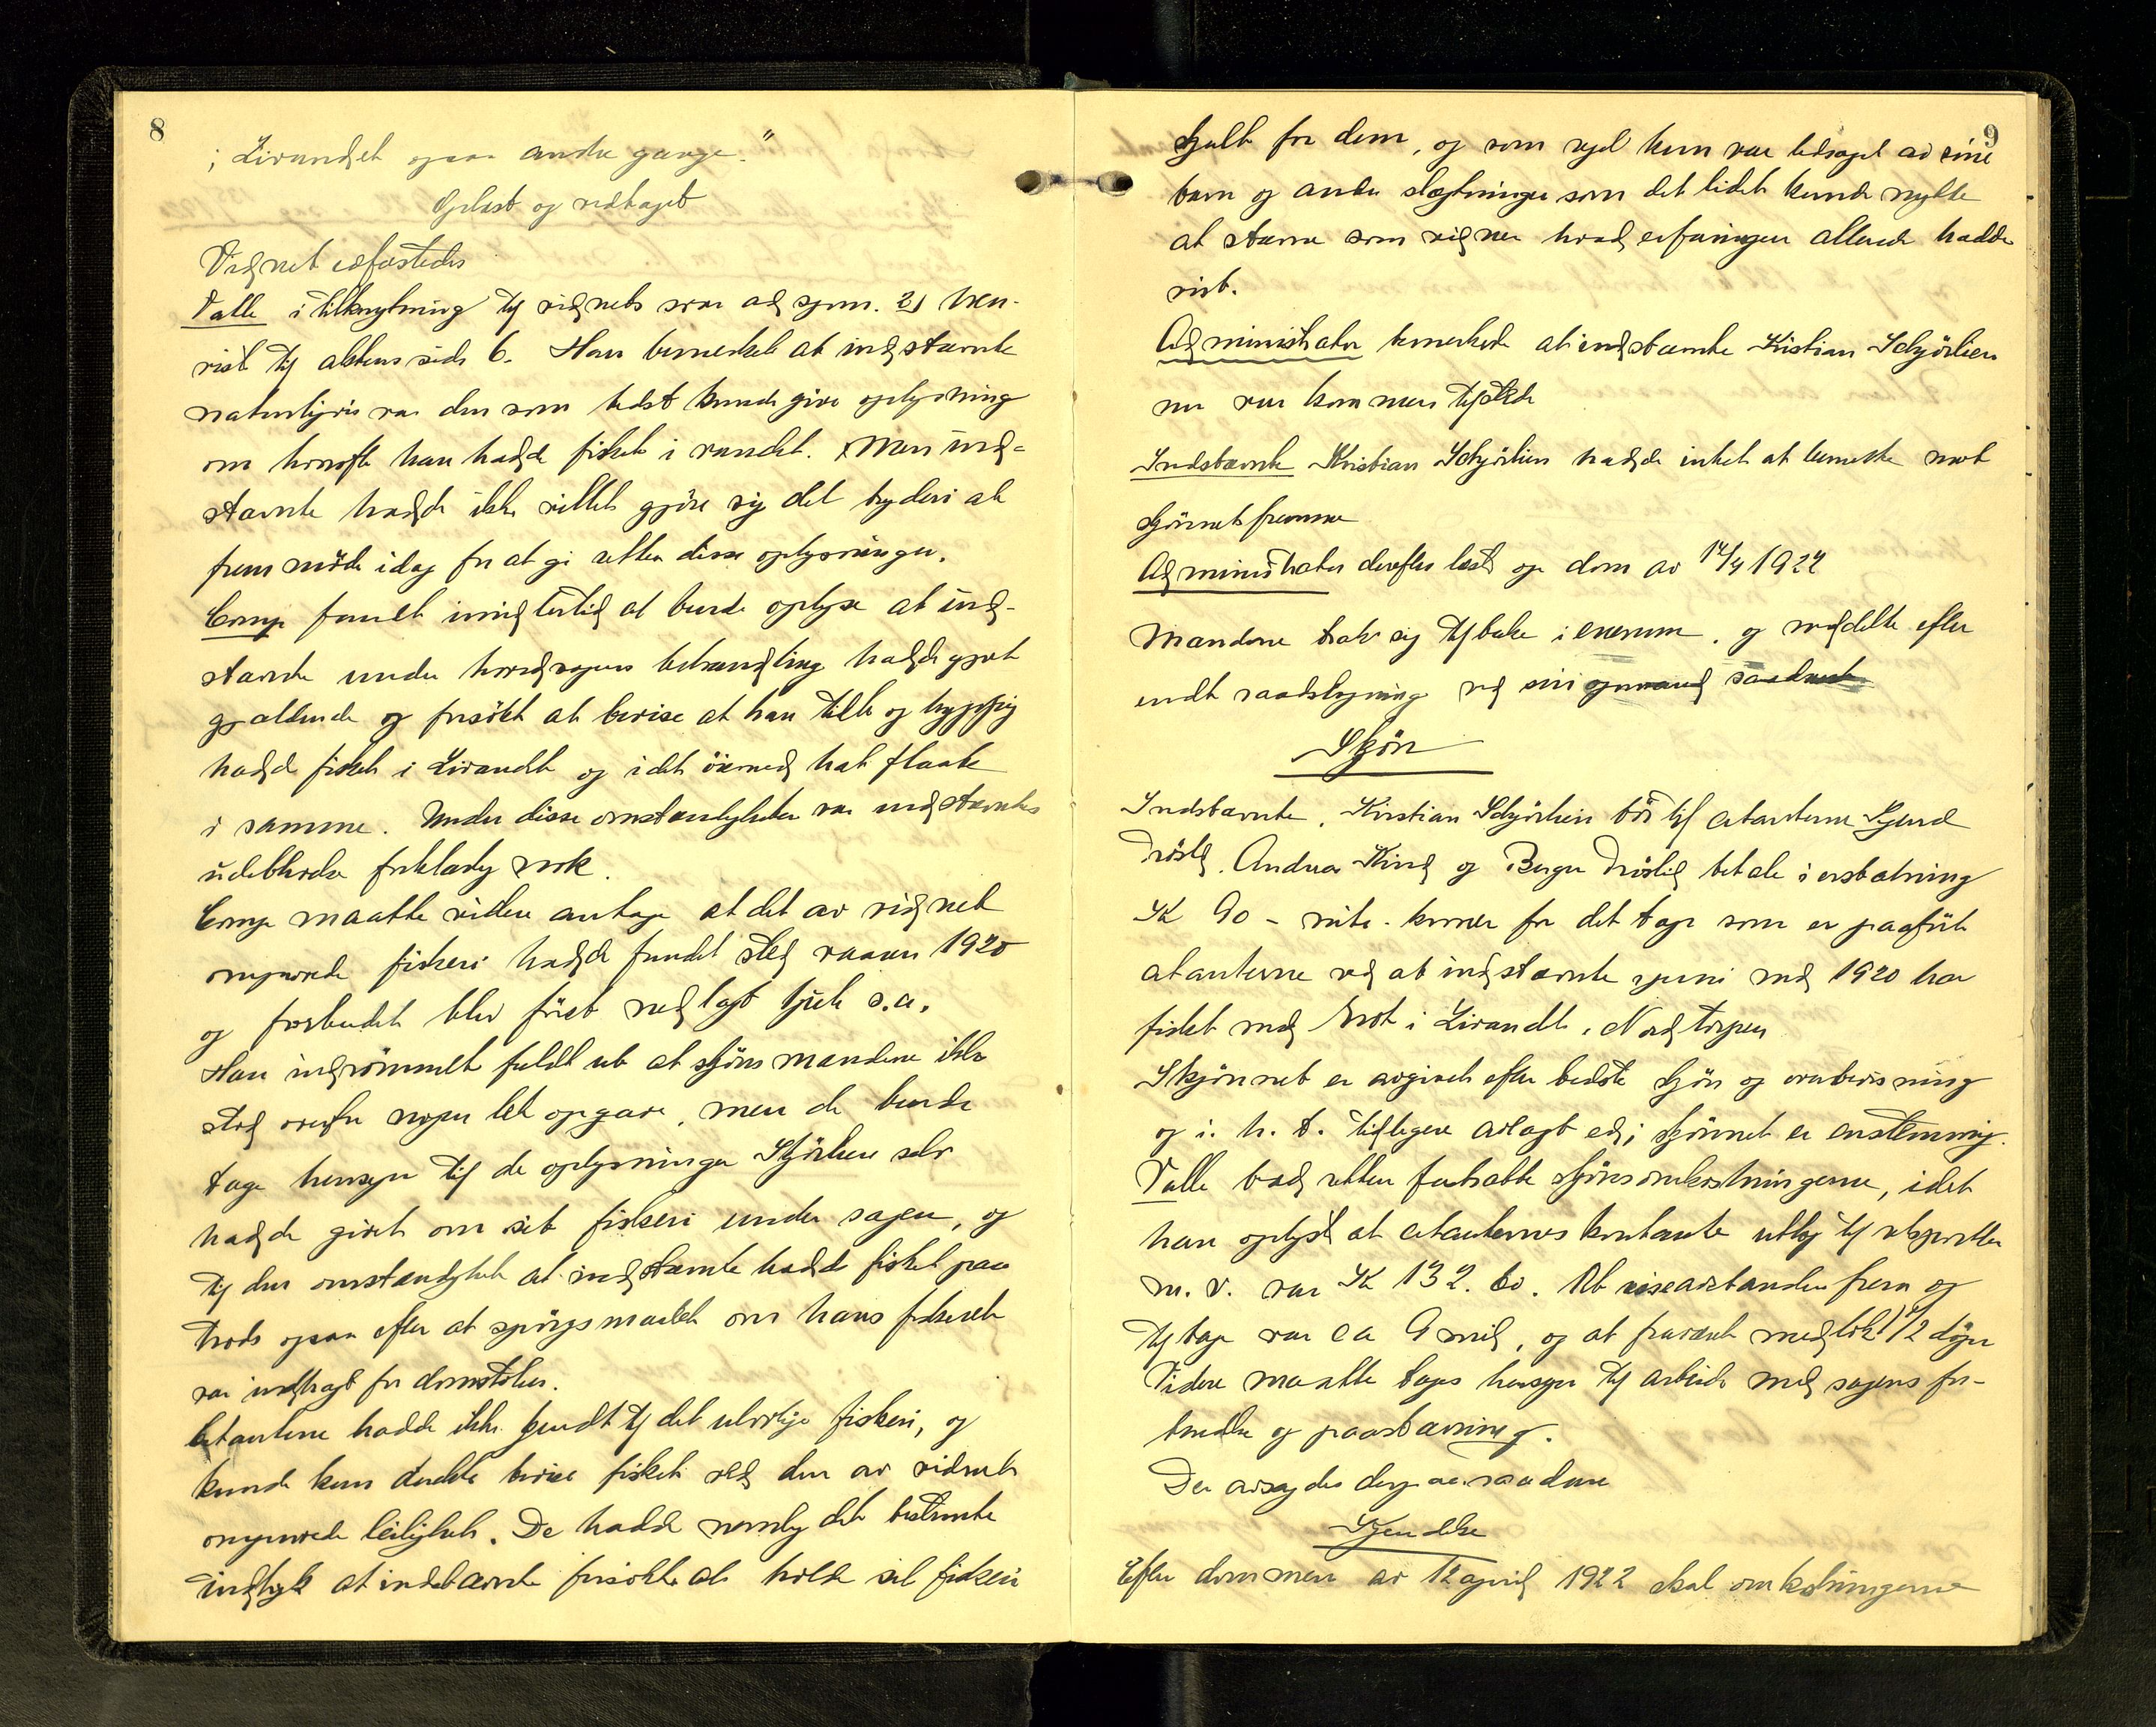 8
i Livandet ogsaa andre gange."
Oplæst og vedtaget
Vidnet edfæstedes
Valle i tilknytning til vidnets svar ad spm. 2) hen-
viste til aktens side 6. Han bemerket at indstævnte
naturligvis var den som bedst kunde give oplysning
om hvorofte han hadde fisket i vandet. Men ind-
stævnte hadde ikke villet gjøre sig det byderi at
fremmøte idag for at gi retten disse oplysninger.
Comp fandt imidlertid at burde oplyse at ind-
stævnte under hovedsagens behandling hadde gjort
gjældende og forsøkt at bevise at han tidt og hyppig
hadde fisket i Livandet og i det øiemed hat flaate
i samme. Under disse omstændigheter var indstævntes
udeblivelse forklarlig nok.
Comp maatte videre antage at det av vidnet
omprovede fiskeri hadde fundet sted vaaren 1920
og forbudet blev først nedlagt s.a.
Han indrømmet fuldt ut at skjønsmændene ikke
stod overfor nogen let opgave, men de burde
tage hensyn til de oplysninger Skjørlien selv
hadde givet om sit fiskeri under sagen, og
til den omstændighet at indstævnte hadde fisket paa
trods ogsaa efter at spørgsmaalet om hans fiskeret
var indbragt for domstolen.
Citanterne hadde ikke kjendt til det ulovlige fiskeri, og
kunde kun direkte bevise fisket ved den av vidnet
omprovede leilighet. De hadde nemlig det bestemte
indtryk at indstævnte forsøkte at holde sit fiskeri
9
skjult for dem, og som regel kun var ledsaget av sine
barn og andre slegtninger som det lidet kunde nytte
at stævne som vidner hvad erfaringen allerede hadde
vist.
Administrator bemerkede at indstævnte Kristian Schjørlien
nu var kommen tilstede
Indstævnte Kristian Schjørlien hadde intet at bemerke mot
skjønnets fremme
Administrator derefter læste op dom av 12/4 1922
Mændene trak sig tilbake i enerum, og meddelte efter
endt raadslagning ved sin opmand saadant
Skjøn
Indstævnte, Kristian Schjørlien bør til citanterne Gjend
Drøslid, Andrea Kind og Borger Drøslid betale i erstatning
Kr 90 – nitti - kroner for det tap som er paaført
citanterne ved at indstævnte i juni md 1920 har
fisket med not i Livandet, Nordtorpen
Skjønnet er avgivet efter bedste skjøn og overbevisning
og i. h. t. tidligere avlagt ed; skjønnet er enstemmig.
Valle bad retten fastsætte skjønsomkostningerne, idet
han oplyste at citanternes kontante utlæg til retsgebyrer
m. v. var Kr 132. 60. At reiseavstanden frem og
tilbage var ca 9 mil, og at fraværet medtok 1 1/2 døgn
Videre maatte tages hensyn til arbeide med sagens for-
beredelse og paastævning.
Der avsagdes derpaa saadan
Kjendelse
Efter dommen av 12 april 1922 skal omkostningerne